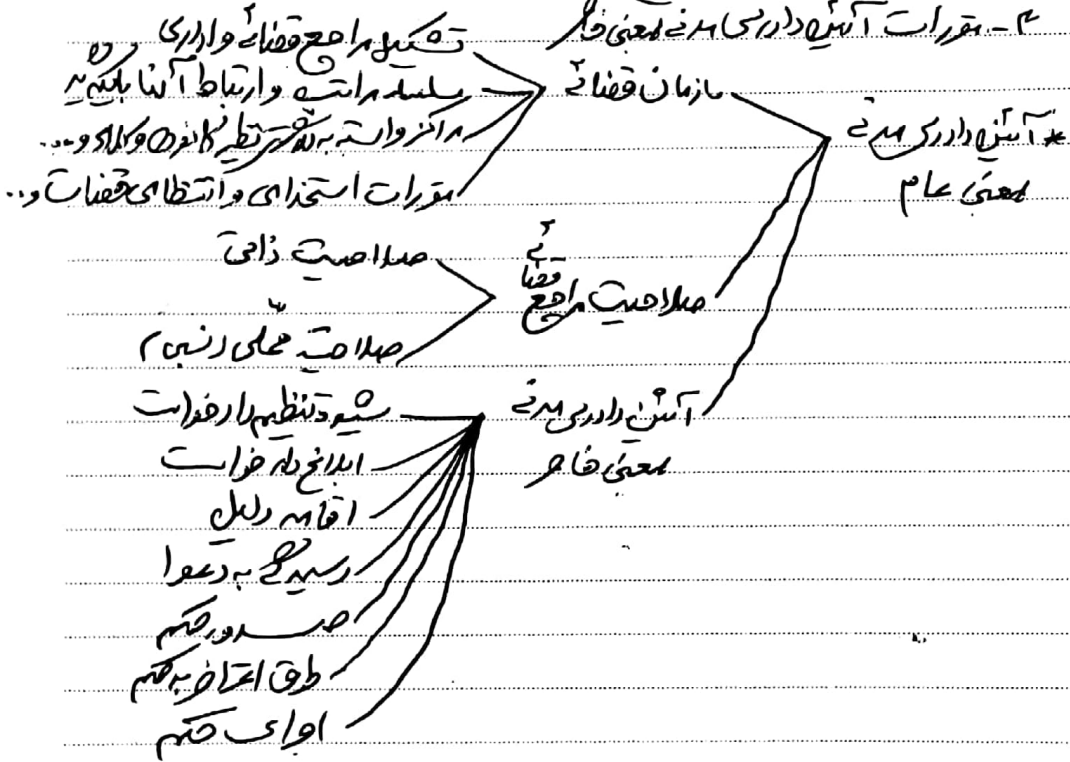 ۳- مقررات آئین دادرسی مدنی بمعنی خاص
* آئین دادرسی مدنی
بمعنی عام
سازمان قضائی
تشکیل مراجع قضائی و اداری
سلسله مراتب و ارتباط آنها با یکدیگر
مراکز وابسته به دادگستری نظیر کانون وکلای و...
مقررات استخدامی و انتظامی قضات و..
صلاحیت مراجع قضائی
صلاحیت ذاتی
صلاحیت محلی (نسبی)
آئین دادرسی مدنی
بمعنی خاص
شیوه تنظیم دادخواست
ابلاغ دادخواست
اقامه دلیل
رسیدگی به دعوا
صدور حکم
طرق اعتراض به حکم
اجرای حکم